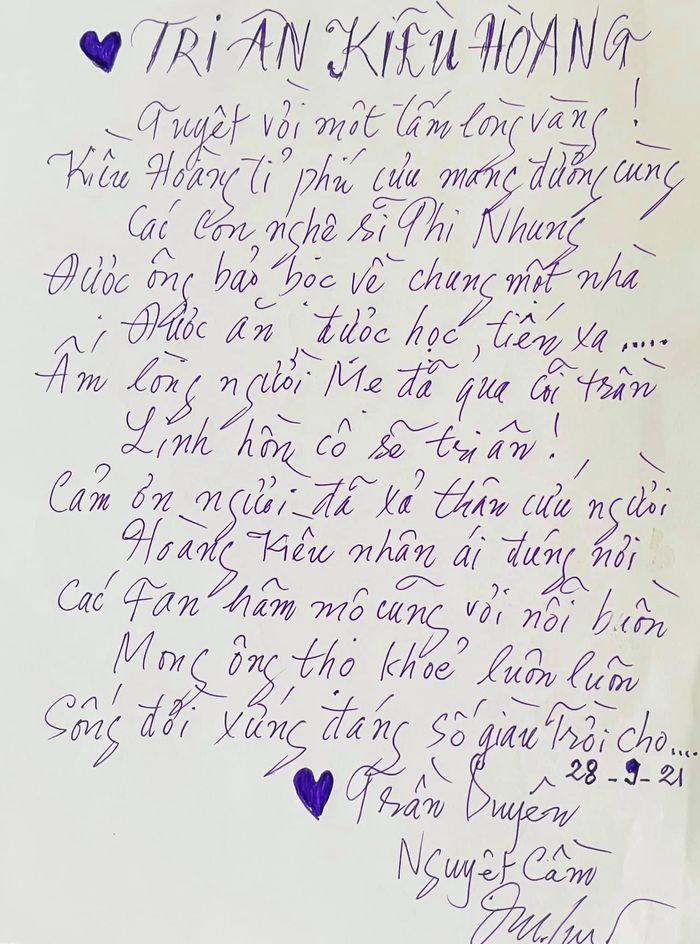 TRI ÂN KIỀU HOÀNG
Tuyệt vời một tấm lòng vàng !
Kiều Hoàng tỉ phú cưu mang đường cùng
Các con nghệ sĩ Phi Nhung
Được ông bảo bọc về chung một nhà
Được ăn, được học, tiến xa .....
Ấm lòng người Mẹ đã qua cõi trần
Linh hồn cô sẽ tri ân !
Cảm ơn người đã xả thân cứu người
Hoàng Kiều nhân ái đúng nơi
Các Fan hâm mộ cùng vơi nỗi buồn
Mong ông thọ khoẻ luôn luôn
Sống đời xứng đáng số giàu Trời cho....
28-9-21
Trần Duyên
Nguyệt Cầm